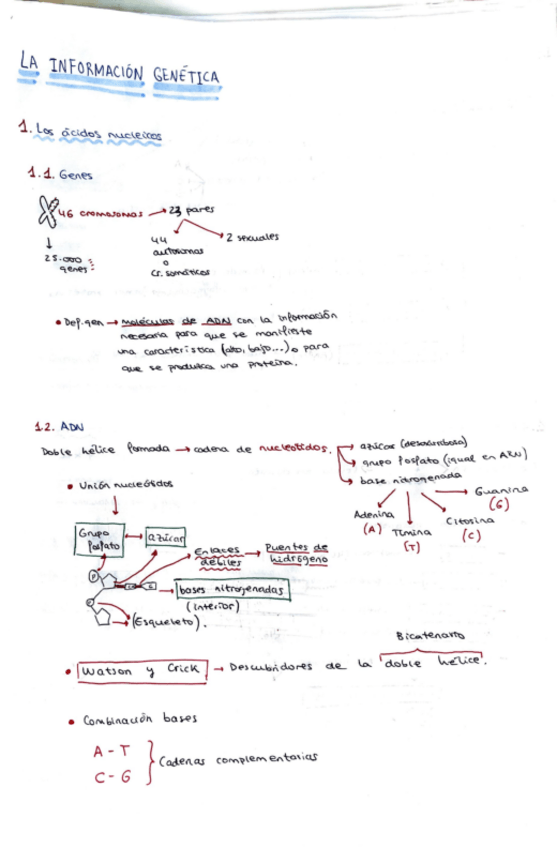 LA INFORMACIÓN GENÉTICA
1. Los ácidos nucleicos
1.1. Genes
46 cromosomas → 23 pares
↓
25.000 genes
44 autosomas o cr. somáticos
2 sexuales
• Def. gen → moléculas de ADN con la información
necesaria para que se manifieste
una característica (alto, bajo...) o para
que se produzca una proteína.
1.2. ADN
Doble hélice formada → cadena de nucleótidos.
azúcar (desoxirribosa)
grupo fosfato (igual en ARN)
base nitrogenada
Adenina (A)
Timina (T)
Citosina (C)
Guanina (G)
• Unión nucleótidos
Grupo fosfato
azúcar
Enlaces débiles → Puentes de hidrógeno
P
bases nitrogenadas
(interior)
(Esqueleto).
Bicatenario
• Watson y Crick → Descubridores de la doble hélice.
• Combinación bases
A - T
C - G
Cadenas complementarias